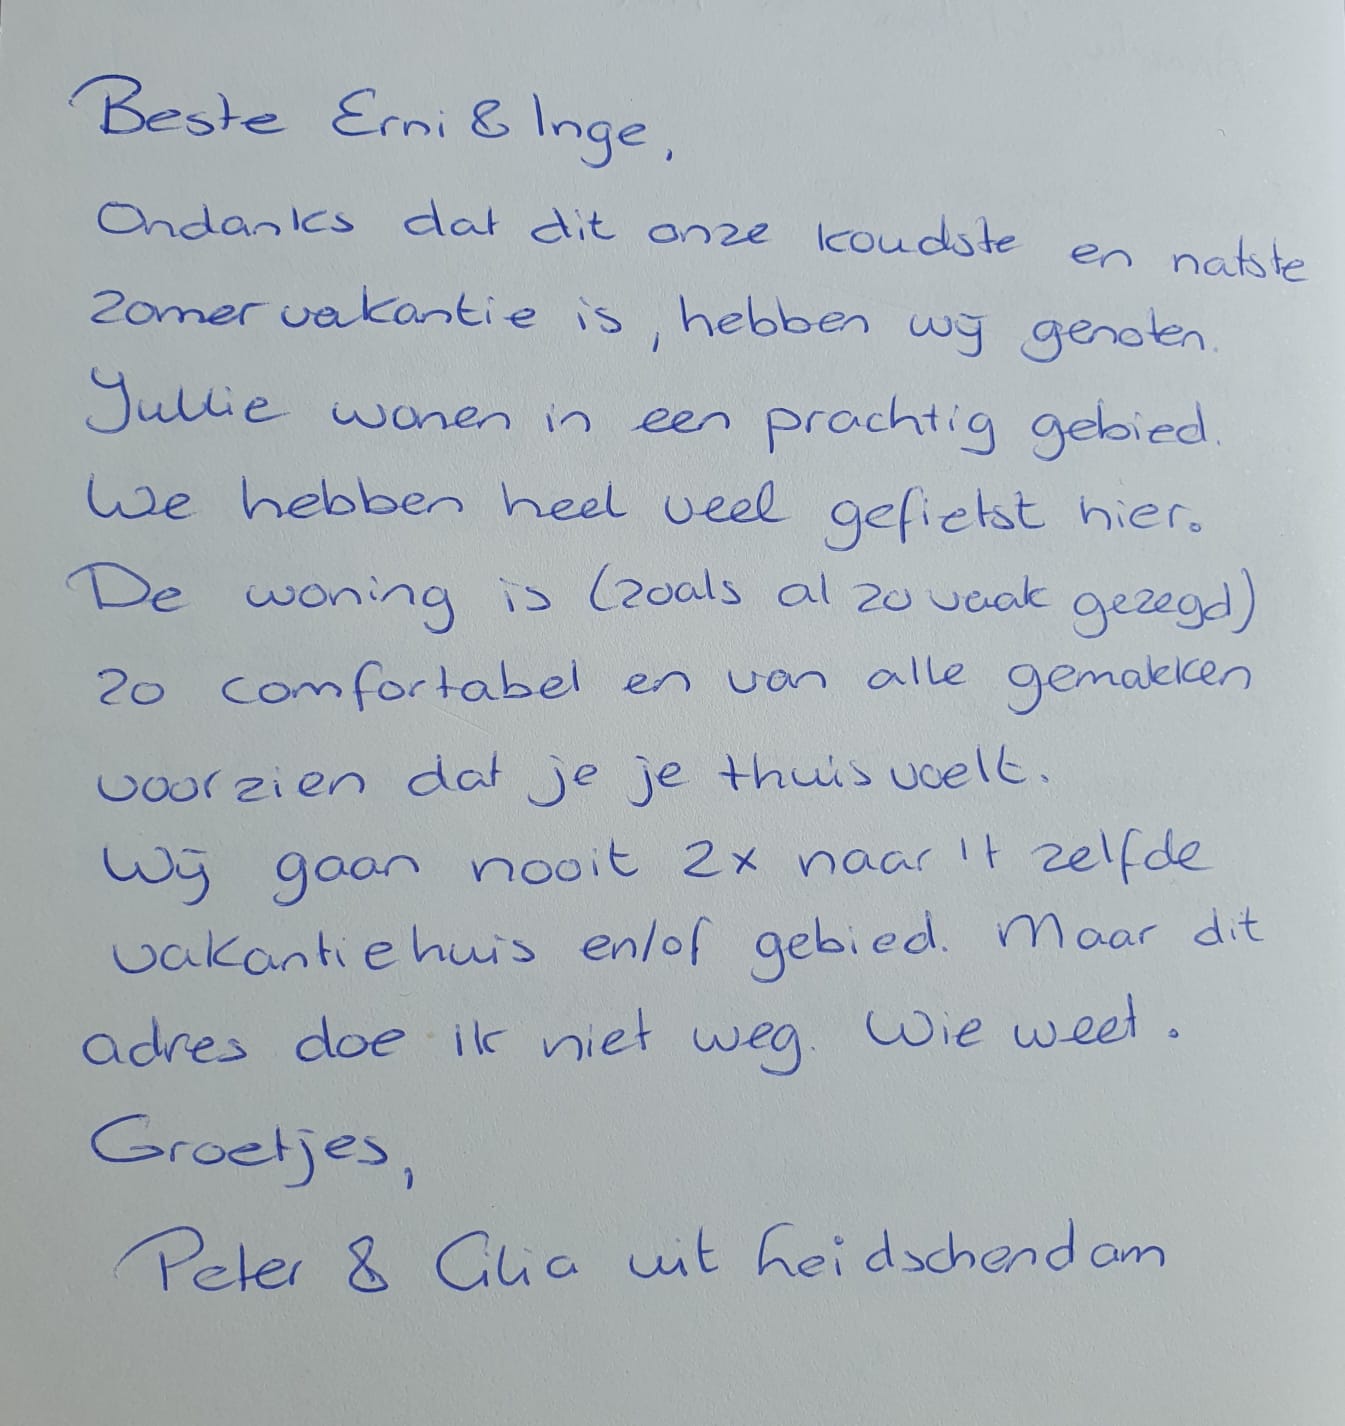 Beste Erni & Inge,
Ondanks dat dit onze koudste en natste
zomervakantie is, hebben wij genoten.
Jullie wonen in een prachtig gebied.
We hebben heel veel gefietst hier.
De woning is (zoals al zo vaak gezegd)
zo comfortabel en van alle gemakken
voorzien dat je je thuis voelt.
Wij gaan nooit 2x naar 't zelfde
vakantiehuis en/of gebied. Maar dit
adres doe ik niet weg. Wie weet.
Groetjes,
Peter & Cilia uit Leidschendam